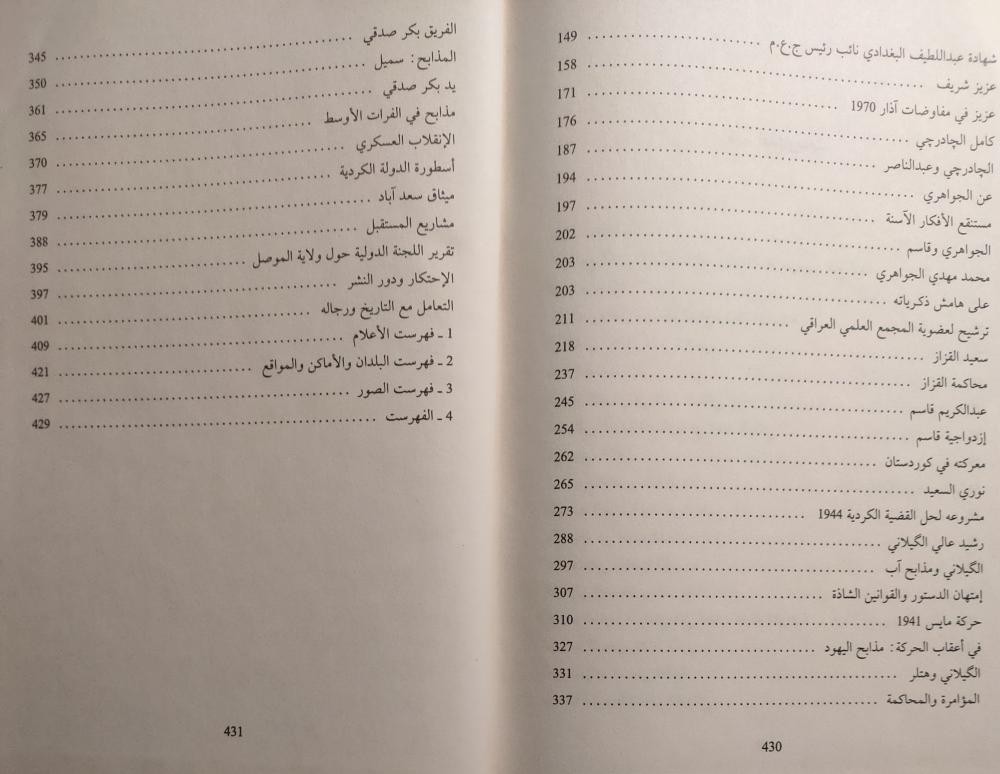 شهادة عبداللطيف البغدادي نائب رئيس ج.ع.م ........ 149
عزيز شريف ........ 158
عزيز في مفاوضات آذار 1970 ........ 171
كامل الچادرچي ........ 176
الچادرچي وعبدالناصر ........ 187
عن الجواهري ........ 194
مستنقع الأفكار الآسنة ........ 197
الجواهري وقاسم ........ 202
محمد مهدي الجواهري ........ 203
على هامش ذكرياته ........ 203
ترشيح لعضوية المجمع العلمي العراقي ........ 211
سعيد القزاز ........ 218
محاكمة القزاز ........ 237
عبدالكريم قاسم ........ 245
إزدواجية قاسم ........ 254
معركته في كوردستان ........ 262
نوري السعيد ........ 265
مشروعه لحل القضية الكردية 1944 ........ 273
رشيد عالي الگيلاني ........ 288
الگيلاني ومذابح آب ........ 297
إمتهان الدستور والقوانين الشاذة ........ 307
حركة مايس 1941 ........ 310
في أعقاب الحركة: مذابح اليهود ........ 327
الگيلاني وهتلر ........ 331
المؤامرة والمحاكمة ........ 337
430
الفريق بكر صدقي ........ 345
المذابح: سميل ........ 350
يد بكر صدقي ........ 361
مذابح في الفرات الأوسط ........ 365
الإنقلاب العسكري ........ 370
أسطورة الدولة الكردية ........ 377
ميثاق سعد آباد ........ 379
مشاريع المستقبل ........ 388
تقرير اللجنة الدولية حول ولاية الموصل ........ 395
الإحتكار ودور النشر ........ 397
التعامل مع التاريخ ورجاله ........ 401
1 ـ فهرست الأعلام ........ 409
2 ـ فهرست البلدان والأماكن والمواقع ........ 421
3 ـ فهرست الصور ........ 427
4 ـ الفهرست ........ 429
431